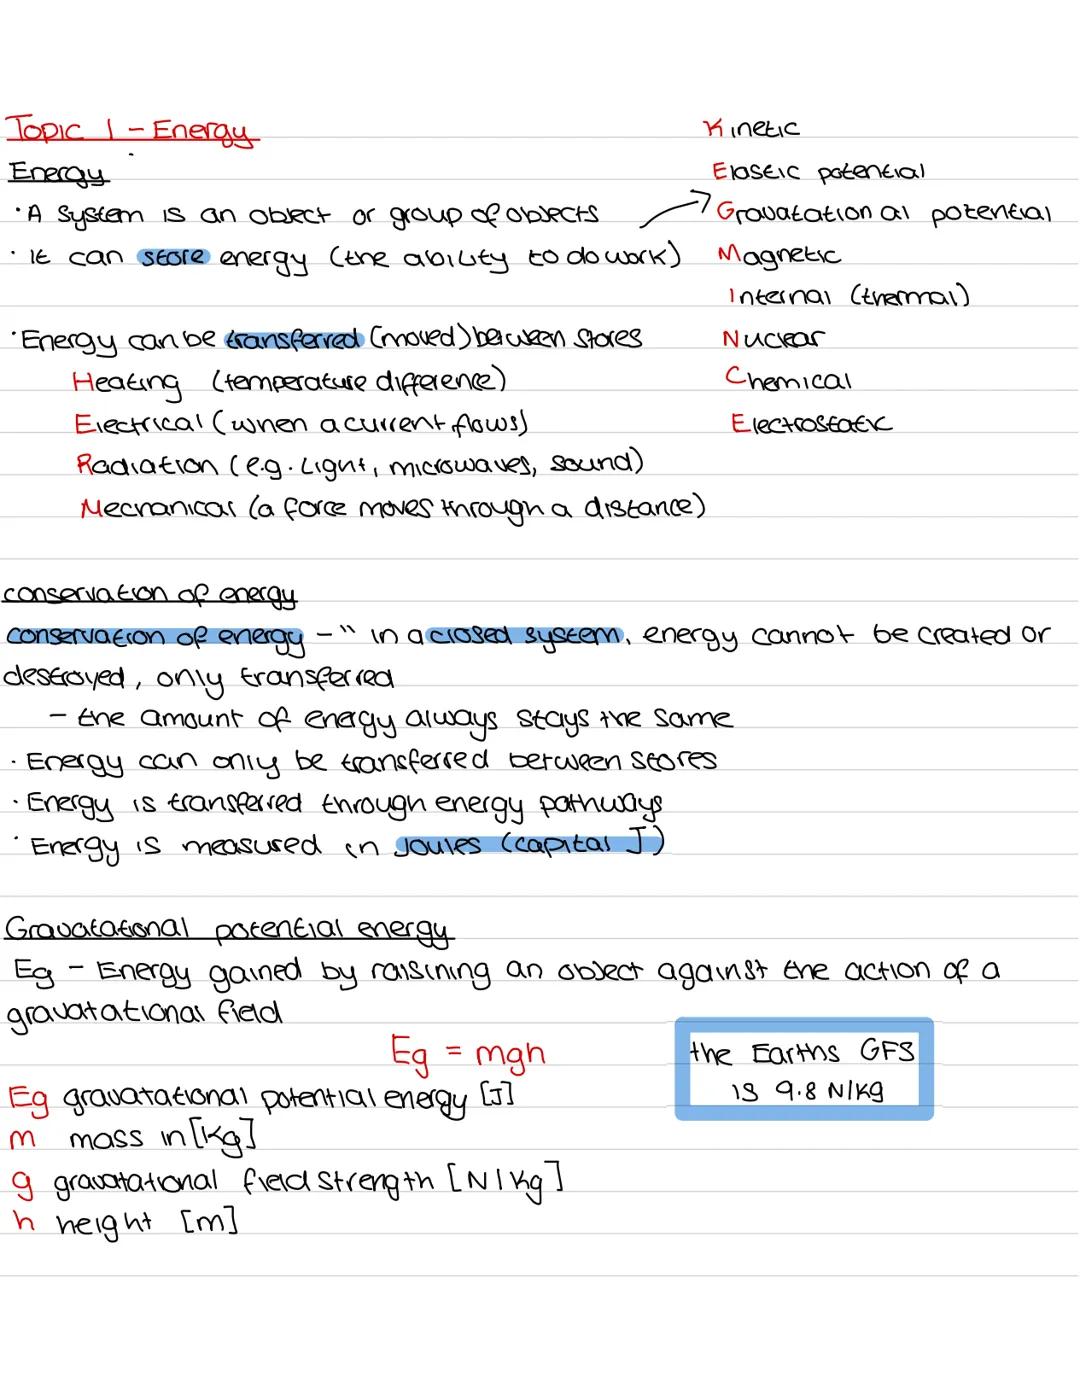 Topic 1 - Energy
Energy
· A system is an object or group of objects
· It can store energy (the ability to do work)
Kinetic
Elastic potential
Gravatational potential
Magnetic
Internal (thermal)
Nuclear
Chemical
Electrostatic
· Energy can be transferred (moved) between stores
Heating (temperature difference)
Electrical (when a current flows)
Radiation (e.g. Light, microwaves, sound)
Mechanical (a force moves through a distance)
conservation of energy
conservation of energy - " in a closed system, energy cannot be created or
destroyed, only transferred
- the amount of energy always stays the same
· Energy can only be transferred between stores
· Energy is transferred through energy pathways
· Energy is measured in Joules (capital J)
Gravatational potential energy
Eg - Energy gained by raisining an object against the action of a
gravatational field
Eg = mgh
the Earths GFS
is 9.8 N/kg
Eg gravatational potential energy [J]
m mass in [kg]
g gravatational field strength [N/kg]
h height [m]